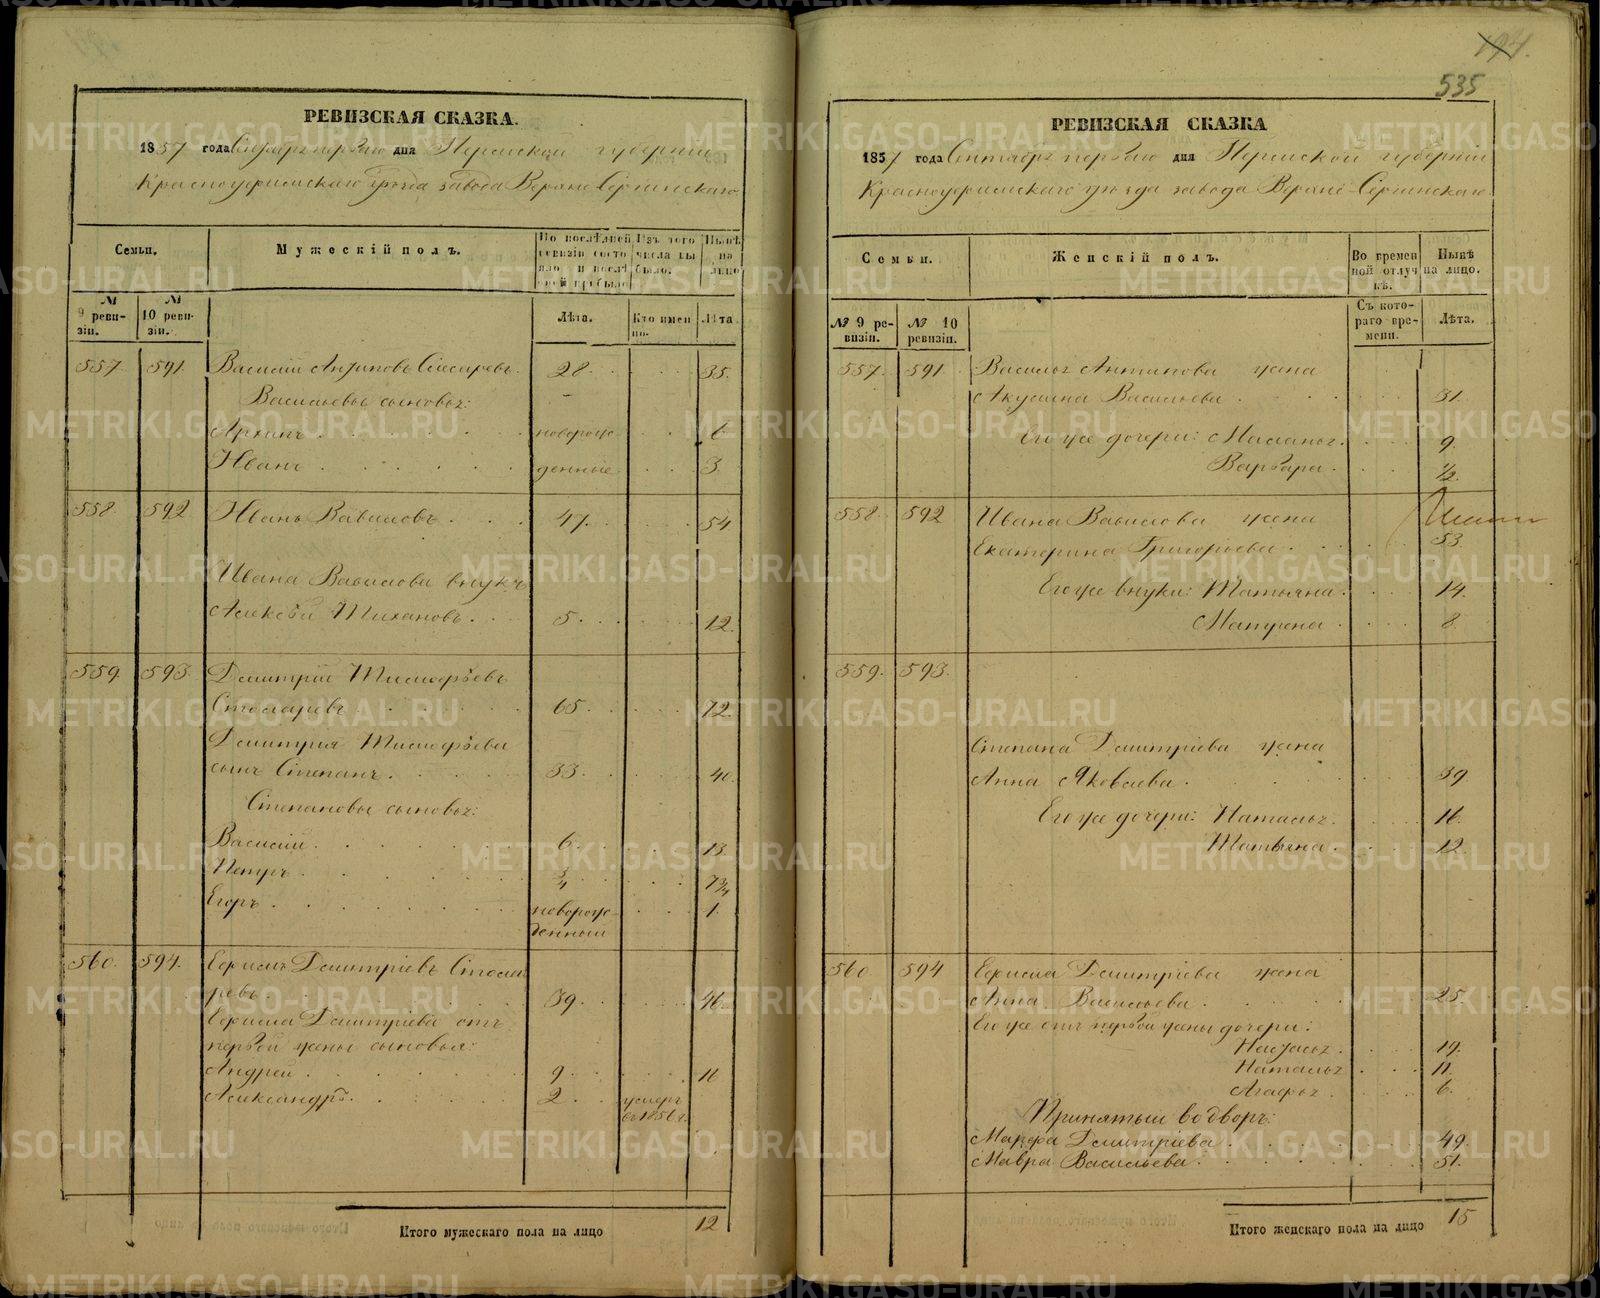 РЕВИЗСКАЯ СКАЗКА.
1857 года Сентября первого дня Пермской губернии
Красноуфимскаго уѣзда завода Верхне-Сергинскаго
Семьи.
Мужескій полъ.
По послѣдней ревизіи состояло и послѣ оной прибыло
Изъ того числа выбыло.
Нынѣ на лицо
№ 9 ревизіи.
№ 10 ревизіи.
Лѣта.
Кто именно.
Лѣта
557. 591. Василій Антиповъ Слесаревъ. 28. 35.
Васильевы сыновья:
Архипъ новорож- 6
Иванъ денные 3.
558. 592 Иванъ Вавиловъ 47. 54
Ивана Вавилова внукъ
Алексѣй Тихановъ 5. 12.
559. 593. Дмитрій Тимофѣевъ
Столяревъ 65. 72.
Дмитрія Тимофѣева
сынъ Степанъ. 33. 40.
Степановы сыновья:
Василій. 6. 13.
Петръ. 3/4 7 3/4
Егоръ. новорож- 1.
денный
560. 594. Ефимъ Дмитріевъ Столя
ревъ. 39. 46.
Ефима Дмитріева отъ
первой жены сыновья:
Андрей 9. 16
Александръ. 2. умеръ
въ 1856 г.
Итого мужескаго пола на лицо 12
194.
535
РЕВИЗСКАЯ СКАЗКА
1857 года Сентября первого дня Пермской губерніи
Красноуфимскаго уѣзда завода Верхне-Сергинскаго
Семьи.
Женскій полъ.
Во временной отлучкѣ.
Нынѣ на лицо.
№ 9 ревизіи.
№ 10 ревизіи.
Съ котораго времени.
Лѣта.
557. 591 Василья Антипова жена
Акулина Васильева. 31.
Его же дочери: Маланья. 9.
Варвара. 1/2.
558. 592 Ивана Вавилова жена
Екатерина Григорьева. 53.
Его же внуки: Татьяна. 14.
Матрена. 8.
559. 593.
Степана Дмитріева жена
Анна Яковлева. 39
Его же дочери: Наталья. 16.
Татьяна. 12.
560. 594 Ефима Дмитріева жена
Анна Васильева. 25.
Его же отъ первой жены дочери:
19.
Наталья. 11.
Агафья. 6.
Принятыи во дворъ:
Марфа Дмитріева. 49.
Мавра Васильева. 51.
Итого женскаго пола на лицо 15
METRIKI.GASO-URAL.RU